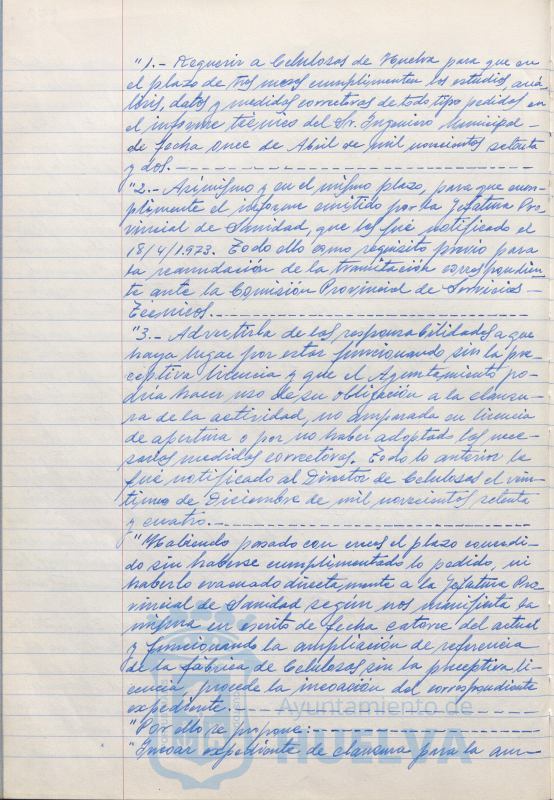 "1.- Requerir a Celulosas de Huelva para que en
el plazo de tres meses cumplimenten los estudios, aná
lisis, datos y medidas correctoras de todo tipo pedidas en
el informe técnico del Sr. Ingeniero Municipal -
de fecha once de Abril de mil novecientos setenta
y dos.-
"2.- Asimismo y en el mismo plazo, para que cum-
plimente el informe emitido por la Jefatura Pro
vincial de Sanidad, que les fué notificado el
18/4/1973. Todo ello como requisito previo para
la reanudación de la tramitación correspondien
te ante la Comisión Provincial de Servicios -
Técnicos.-
"3.- Advertirla de las responsabilidades a que
haya lugar por estar funcionando sin la pre
ceptiva licencia y que el Ayuntamiento po-
dría hacer uso de su obligación a la clausu-
ra de la actividad, no amparada en licencia
de apertura o por no haber adoptado las nece-
sarias medidas correctoras. Todo lo anterior le
fué notificado al Director de Celulosas el vein-
tiuno de Diciembre de mil novecientos setenta
y cuatro.-
"Habiendo pasado con creces el plazo concedi-
do sin haberse cumplimentado lo pedido, ni
haberlo evacuado directamente a la Jefatura Pro
vincial de Sanidad según nos manifiesta la
misma en escrito de fecha catorce del actual
y funcionando la ampliación de referencia
de la fábrica de Celulosas, sin la preceptiva li-
cencia, procede la incoación del correspondiente
expediente.-
"Por ello se propone:
"Incoar expediente de clausura para la am-
Ayuntamiento de
HUELVA